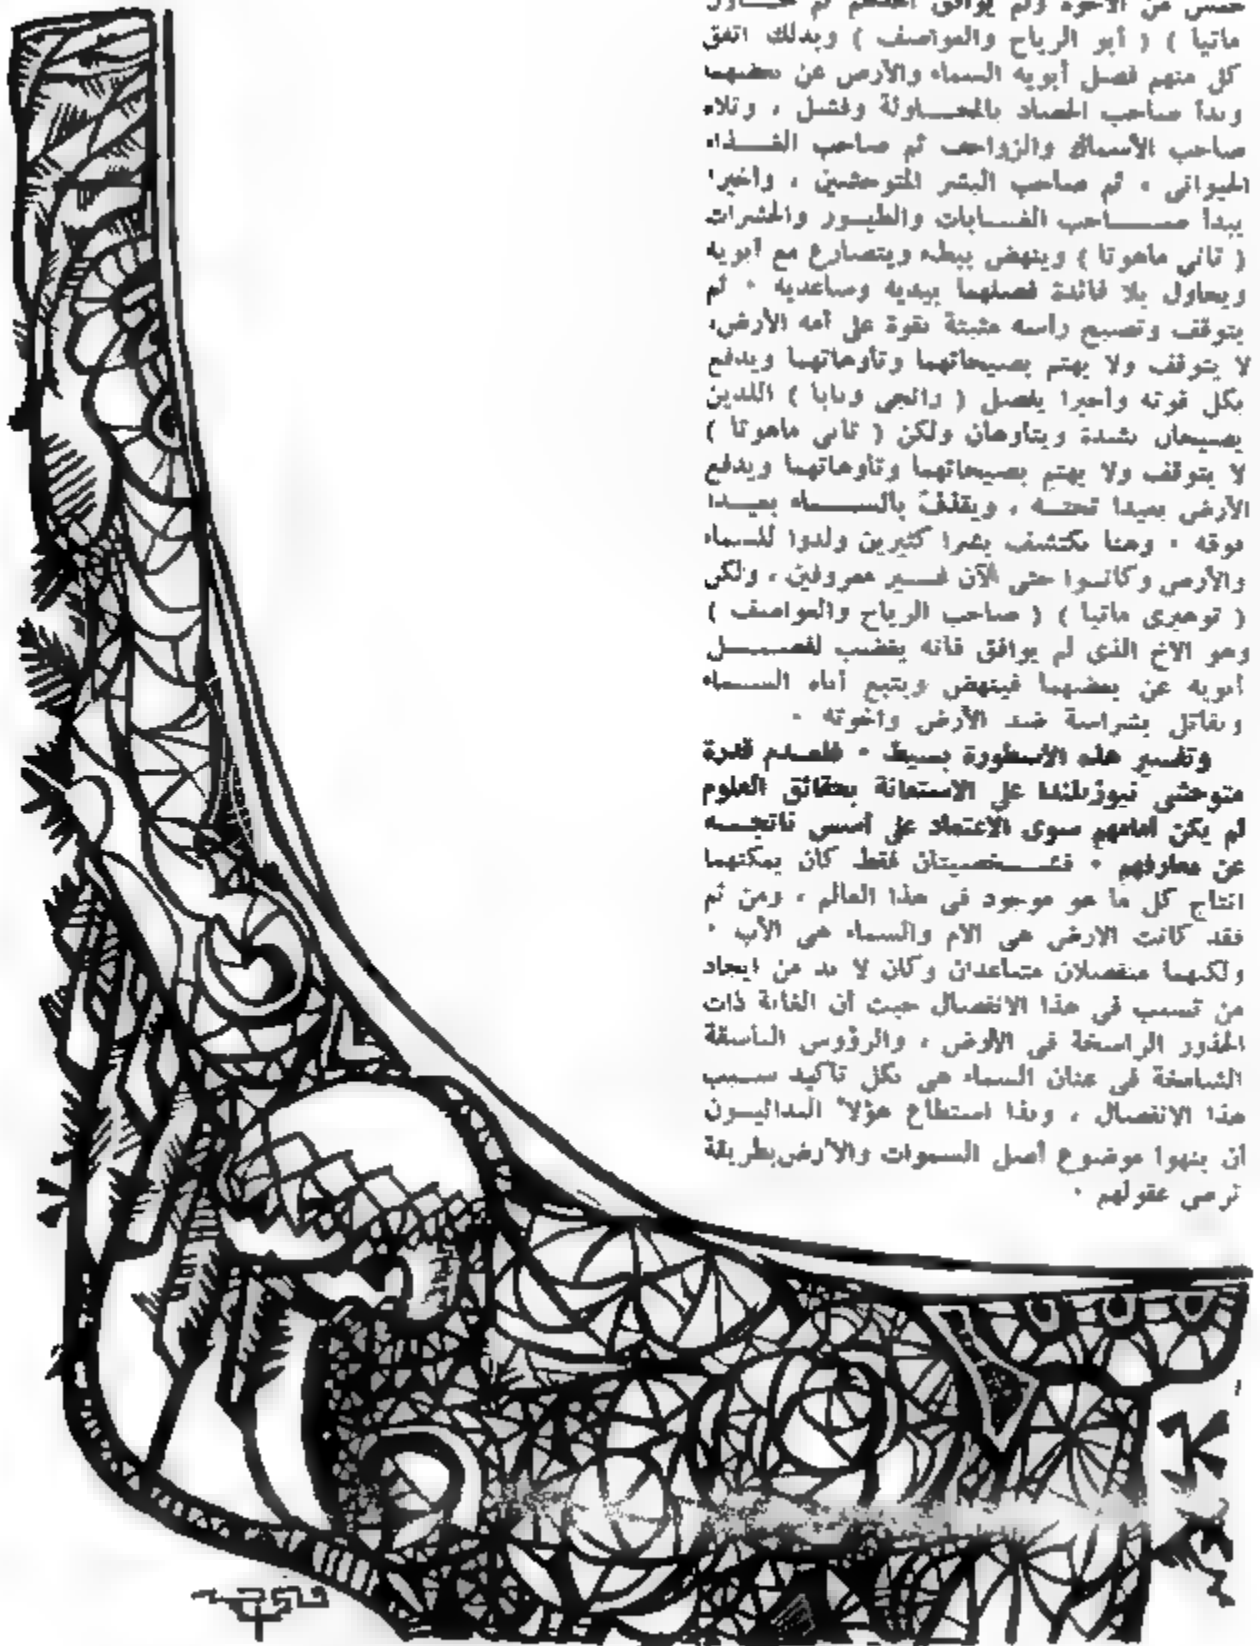 خمس من الاخوة ولم يوافق أحدهم ثم
ماتيا ) ( أبو الرياح والعواصف ) وبذلك اتفق
كل منهم فصل أبويه السماء والأرض عن بعضهما
وبدأ صاحب الحصاد بالمحاولة وفشل ، وتلاه
صاحب الأسماك والزواحف ثم صاحب الغذاء
الحيوانى ، ثم صاحب البشر المتوحشين ، وأخيرا
يبدأ صاحب الغابات والطيور والحشرات
( تانى ماهوتا ) وينهض ببطء ويتصارع مع أبويه
ويحاول بلا فائدة فصلهما بيديه وساعديه ٠ ثم
يتوقف وتصبح رأسه مثبتة بقوة على أمه الأرض،
لا يتوقف ولا يهتم بصيحاتهما وتأوهاتهما ويدفع
بكل قوته وأخيرا يفصل ( رانجى وبابا ) اللذين
يصيحان بشدة ويتأوهان ولكن ( تانى ماهوتا )
لا يتوقف ولا يهتم بصيحاتهما وتأوهاتهما ويدفع
الأرض بعيدا تحته ، ويقذف بالسماء بعيدا
فوقه ٠ وهنا يكتشف بشرا كثيرين ولدوا للسماء
والأرض وكانوا حتى الآن غير معروفين ، ولكن
( توهيرى ماتيا ) ( صاحب الرياح والعواصف )
وهو الاخ الذى لم يوافق فانه يغضب لفصل
أبويه عن بعضهما فينهض ويتبع أباه السماء
ويقاتل بشراسة ضد الأرض واخوته ٠
وتفسير هذه الأسطورة بسيط ٠ فلعدم قدرة
متوحشى نيوزيلندا على الاستعانة بحقائق العلوم
لم يكن أمامهم سوى الاعتماد على أسس ناتجة
عن معارفهم ٠ فشخصيتان فقط كان يمكنهما
انتاج كل ما هو موجود فى هذا العالم ، ومن ثم
فقد كانت الارض هى الام والسماء هى الأب ٠
ولكنهما منفصلان متباعدان وكان لا بد من ايجاد
من تسبب فى هذا الانفصال حيث أن الغابة ذات
الجذور الراسخة فى الأرض ، والرؤوس الباسقة
الشامخة فى عنان السماء هى بكل تأكيد سبب
هذا الانفصال ، وبذا استطاع هؤلاء البدائيون
أن ينهوا موضوع أصل السموات والأرض بطريقة
ترضى عقولهم ٠